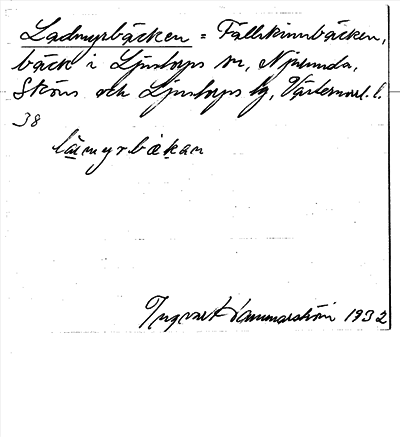 Ladmyrbäcken = Fällskinnbäcken,
bäck i Ljustorps sn, Njurunda,
Sköns och Ljustorps tg, Västernorrl. l.
38
lámyrbäkan
Ingvar Hammarström 1932